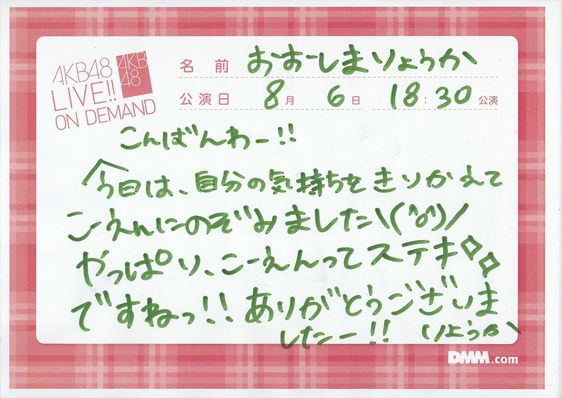 AKB48
AKB
48
LIVE!!
ON DEMAND
名前 おおーしまりょうか
公演日 8月 6日 18:30公演
こんばんわー!!
今日は、自分の気持ちをきりかえて
こーえんにのぞみました\(^o^)/
やっぱり、こーえんってステキ
ですねっ!! ありがとうございま
したー!! りょうか
DMM.com